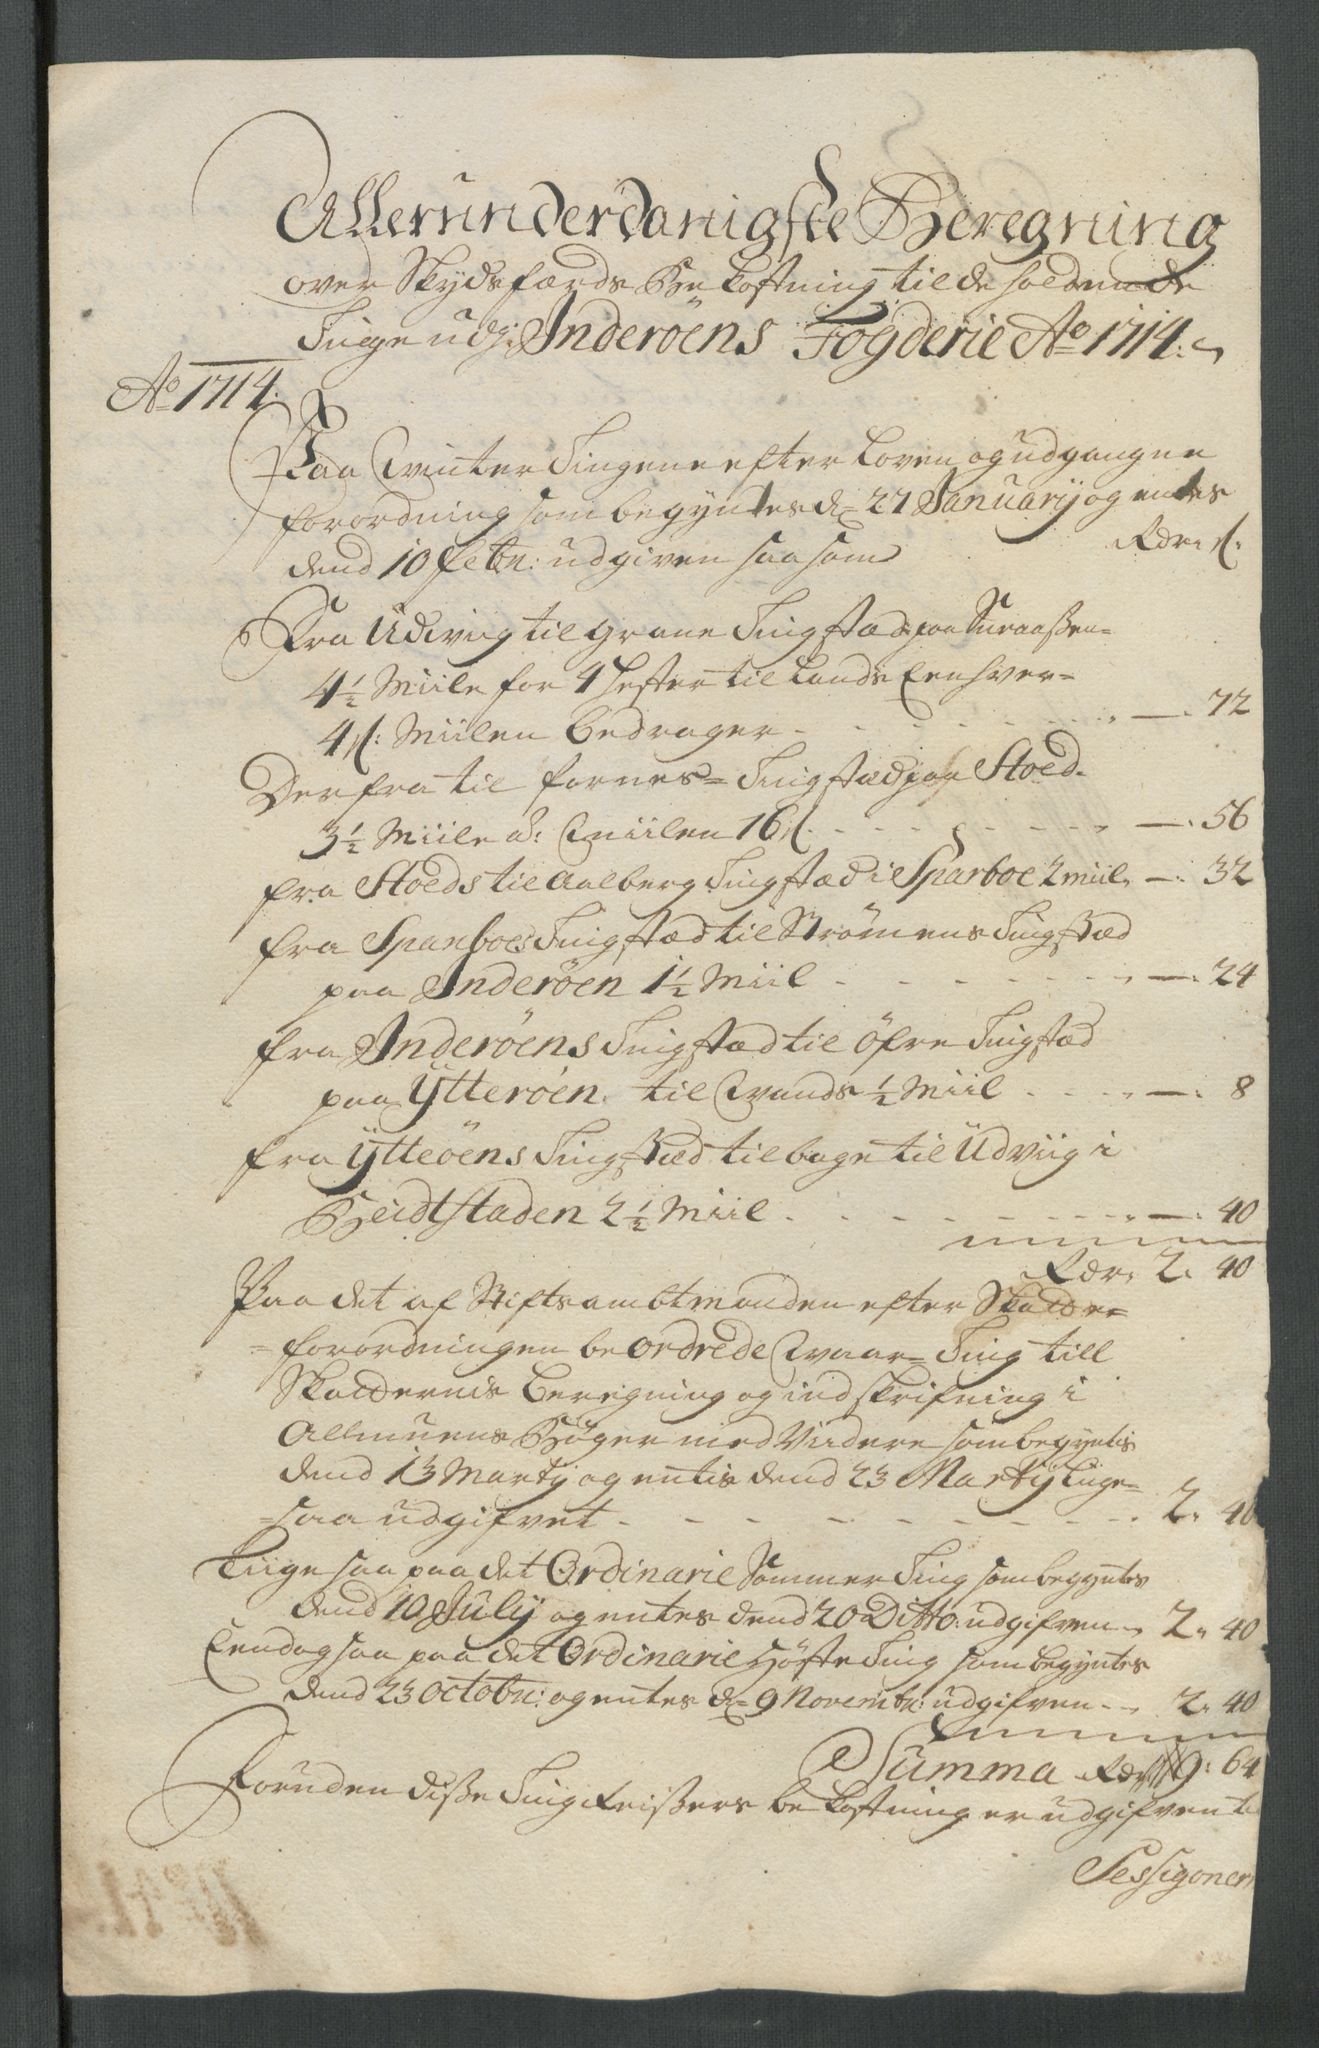 Allerunderdanigste Beregning
over Skydsfærds Bekostning til de holdende
Tinge udj Inderöens Fögderie Ao 1714:
Ao 1714.
Paa Winter Tingene efter Loven og udgangne
forordning som begyntes d= 27 Januarij og entes
dend 10 febr: udgiven saasom Rdr. s:
Fra Udviig til Grane Tingstæd paa Snaaßen=
4½ Miile for 4 hester til Lands Eenhver=
4 s: Miilen bedrager - - - - - - - —. 72
Derfra til fornes= Tingstæd paa Stoed.
3½ Miile a: Miilen 16 s. - - - - - - - —. 56
fra Stoeds til Aalberg Tingstæd i Sparboe 2 miil. —. 32
fra Sparboes Tingstæd til Strömens Tingstæd
paa Inderöen 1½ Miil - - - - - - —. 24
fra Inderöens Tingstæd til Öfre Tingstæd
paa Ytteröen. til Wands ½ Miil - - - - —. 8
fra Ytteöens Tingstæd tilbage til Udviig i
Beidtstaden 2½ Miil. - - - - - - - —. 40
Rdr. 2. 40
Paa det af Stiftsambtmanden efter Skatte=
=forordningen beordrede Waar= Ting till
Skatternis beregning og indskrifning i
Allmuens Böger med Viidere som begyntis
dend 13 Marty og entis dend 23 Martij Liige=
=saa udgifvet - - - - - - - - - 2. 40
Liigesaa paa det Ordinarie Sommer Ting som begyntes
dend 10 July og entes dend 20 Ditto: udgifven - . 2. 40
Eendogsaa paa det Ordinarie Höste Ting som begyntes
dend 23 octobr: og entes d= 9 Novembr: udgifven - - . 2. 40
Summa Rdr 9: 64
Foruden diße Ting Reißers bekostning er udgifvent
Sessigonen